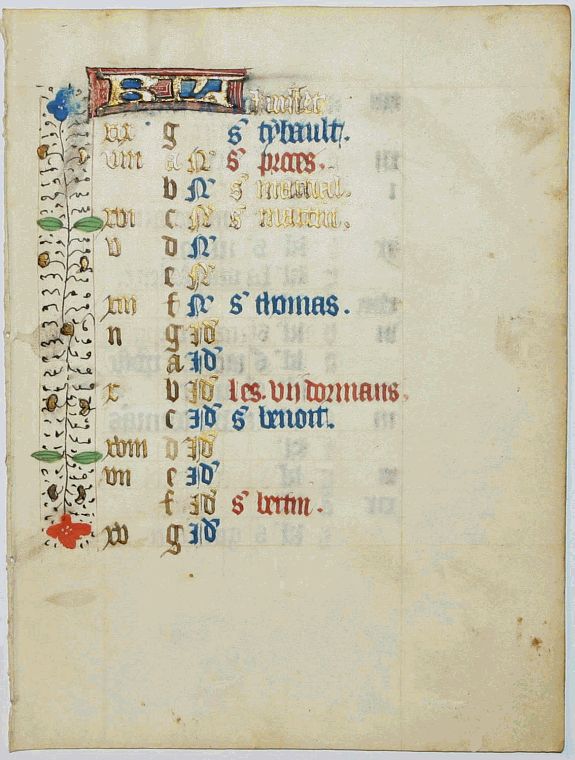 KL Juillet
xix g s' tybault.
viii a N s'
b N s' marcial.
xvi c N s' martin.
v d N
e N
xiii f N s' thomas.
ii g id
a id
x b id les. vii dormans.
c id s' benoit.
xviii d id
vii e id
f id s' bertin.
xv g id